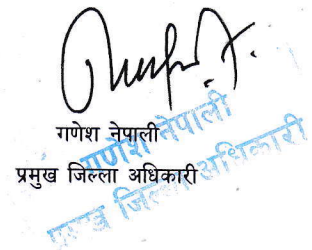 गणेश नेपाली
प्रमुख जिल्ला अधिकारी
गणेश नेपाली
प्रमुख जिल्ला अधिकारी